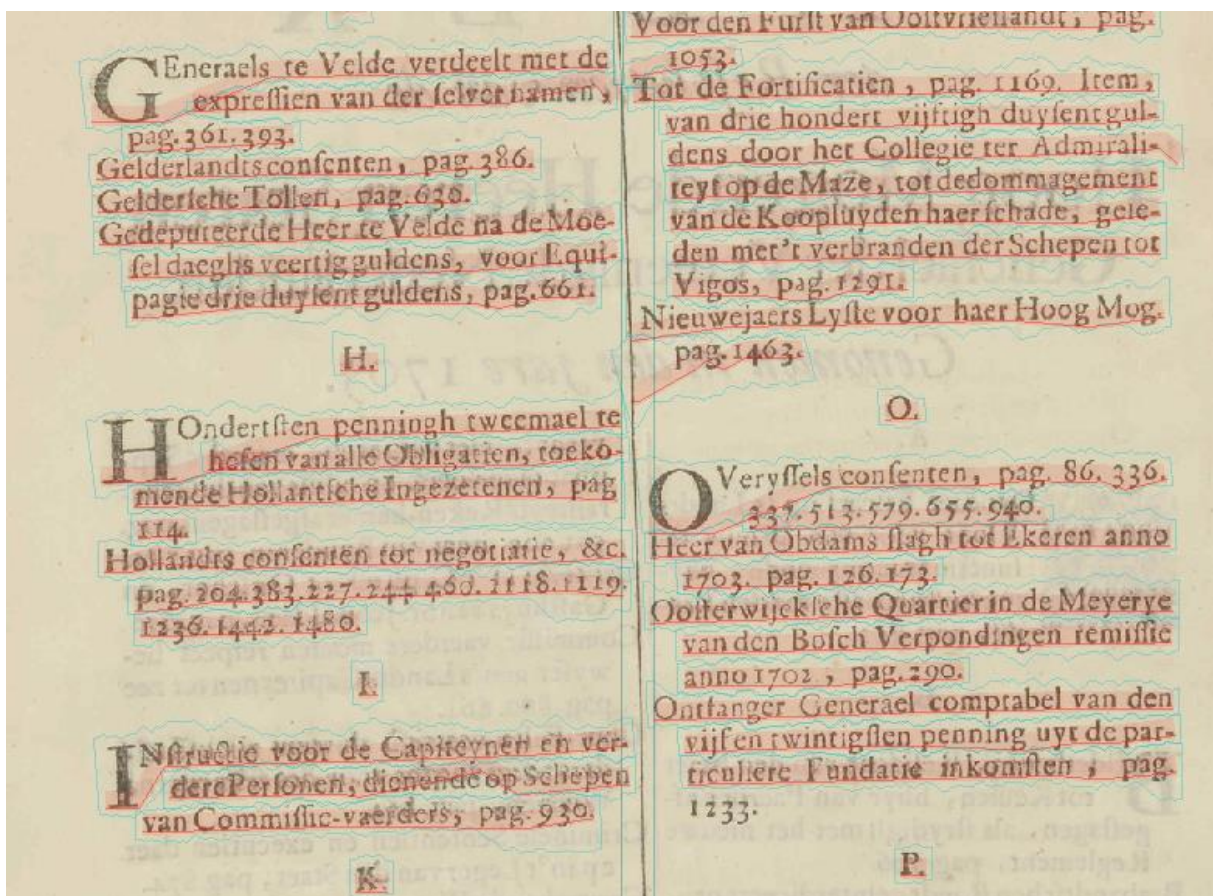 GEneraels te Velde verdeelt met de
expressien van der selver namen,
pag. 361. 393.
Gelderlandts consenten, pag. 386.
Geldersche Tollen, pag. 638.
Gedeputeerde Heer te Velde na de Moe-
sel daeghs veertig guldens, voor Equi-
pagie drie duysent guldens, pag. 661.
H.
HOndertsten penningh tweemael te
heffen van alle Obligatien, toeko-
mende Hollantsche Ingezetenen, pag
114.
Hollandts consenten tot negotiatie, &c.
pag. 204. 383. 227. 244 460. 1118. 1119.
1236. 1442. 1480.
I.
INstructie voor de Capiteynen en ver-
dere Personen, dienende op Schepen
van Commissie-vaerders, pag. 930.
K.
Voor den Furst van Oostvrieslandt, pag.
1053.
Tot de Fortificatien, pag. 1169. Item,
van drie hondert vijftigh duysent gul-
dens door het Collegie ter Admirali-
teyt op de Maze, tot dedommagement
van de Koopluyden haer schade, gele-
den met 't verbranden der Schepen tot
Vigos, pag. 1291.
Nieuwejaers Lyste voor haer Hoog Mog.
pag. 1463.
O.
OVeryssels consenten, pag. 86. 336.
337. 513. 579. 655. 940.
Heer van Obdams slagh tot Ekeren anno
1703. pag. 126. 173.
Oosterwijcksche Quartier in de Meyerye
van den Bosch Verpondingen remissie
anno 1702, pag. 290.
Ontfanger Generael comptabel van den
vijf en twintigsten penning uyt de par-
ticuliere Fundatie inkomsten, pag.
1233.
P.